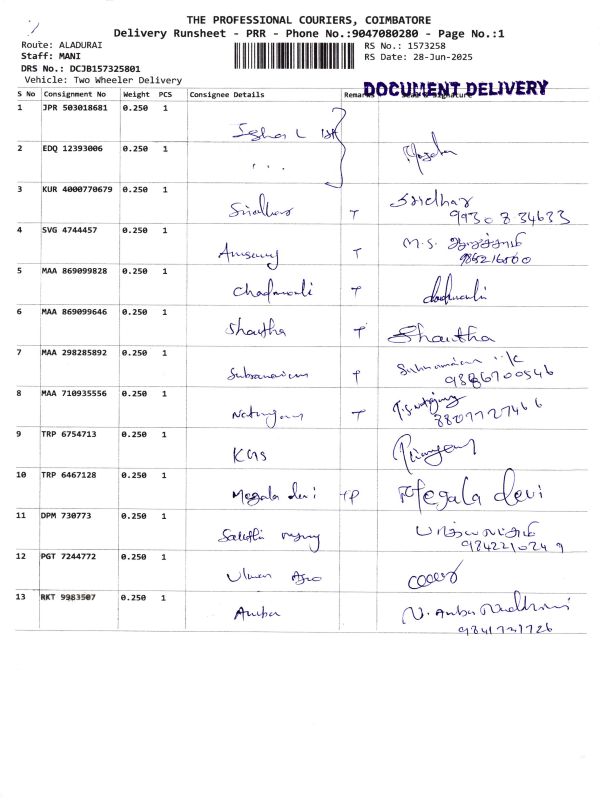 THE PROFESSIONAL COURIERS, COIMBATORE
Delivery Runsheet - PRR - Phone No.:9047080280 - Page No.:1
Route: ALADURAI
Staff: MANI
DRS No.: DCJB157325801
Vehicle: Two Wheeler Delivery
RS No.: 1573258
RS Date: 28-Jun-2025
DOCUMENT DELIVERY
S No Consignment No Weight PCS Consignee Details Remarks Seal & Signature
1 JPR 503018681 0.250 1
2 EDQ 12393006 0.250 1
3 KUR 4000770679 0.250 1 Sridhar T Sridhar
99308 34633
4 SVG 4744457 0.250 1 T M.S.
5 MAA 869099828 0.250 1 T
6 MAA 869099646 0.250 1 Shantha T Shantha
7 MAA 298285892 0.250 1 T
9886700546
8 MAA 710935556 0.250 1 T
8807727466
9 TRP 6754713 0.250 1 KGS
10 TRP 6467128 0.250 1 Megala devi TP Megala devi
11 DPM 730773 0.250 1
9842210249
12 PGT 7244772 0.250 1
13 RKT 9983507 0.250 1 Ambu
9841727726